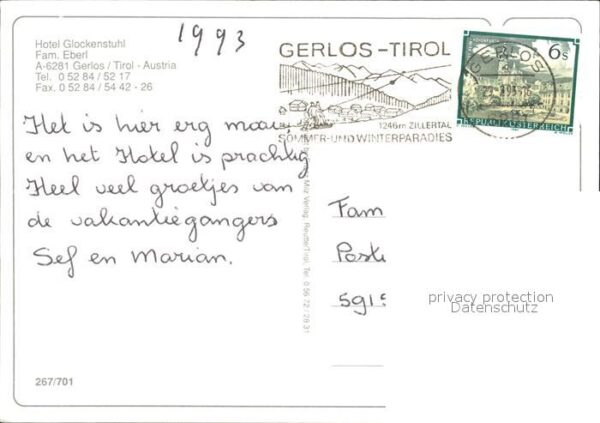 1993
Hotel Glockenstuhl
Fam. Eberl
A-6281 Gerlos / Tirol - Austria
Tel. 0 52 84 / 52 17
Fax. 0 52 84 / 54 42 - 26
GERLOS-TIROL
1246m ZILLERTAL
SOMMER-UND WINTERPARADIES
6s
GERLOS
REPUBLIK ÖSTERREICH
Het is hier erg mooi,
en het Hotel is prachtig
Heel veel groetjes van
de vakantiegangers
Sef en Marian.
Verlag, Reutte/Tirol, Tel. 0 56 72 / 28 31
Fam
Poste
591
privacy protection
Datenschutz
267/701